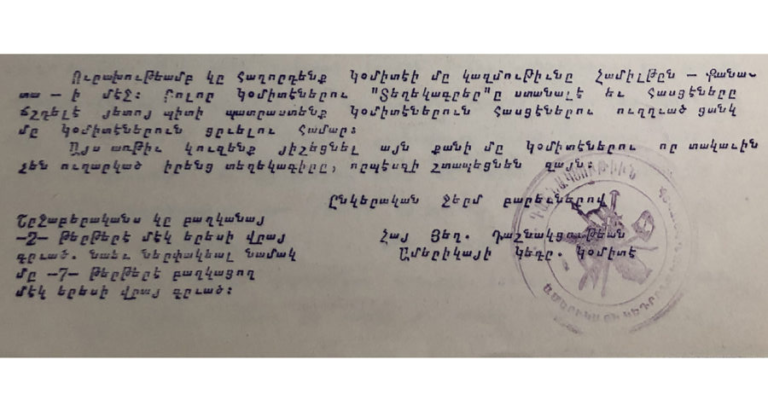 Ուրախութեամբ կը հաղորդենք կօմիտէի մը կազմութիւնը Համիլթըն — Քանա-
տա — ի մէջ: Բոլոր կօմիտէներու "Տեղեկագրերը" ստանալէ եւ հասցէները
ճշդելէ յետոյ պիտի պատրաստենք կօմիտէներուն հասցէներու ուղղուած ցանկ
մը կօմիտէներուն ցրւելու համար:
Այս առթիւ կուզենք յիշեցնել այն քանի մը կօմիտէներու որ տակաւին
չեն ուղարկած իրենց տեղեկագիրը, որպէսզի շտապեցնեն զայն:
Ընկերական ջերմ բարեւներով
Շրջաբերականս կը բաղկանայ
—2— թերթերէ մէկ երեսի վրայ
գրւած. նաեւ ներփակեալ նամակ
մը —7— թերթերէ բաղկացող
մէկ երեսի վրայ գրւած:
Հայ Յեղ. Դաշնակցութեան
Ամերիկայի Կեդր. Կօմիտէ